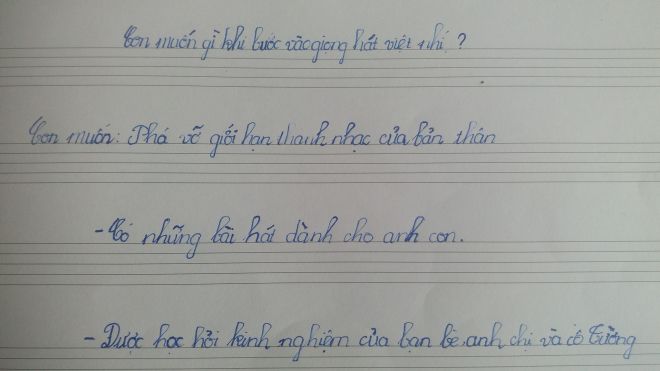 Con muốn gì khi bước vào giọng hát việt nhí?
Con muốn: Phá vỡ giới hạn thanh nhạc của bản thân
- Có những bài hát dành cho anh con.
- Được học hỏi kinh nghiệm của bạn bè, anh chị và cô